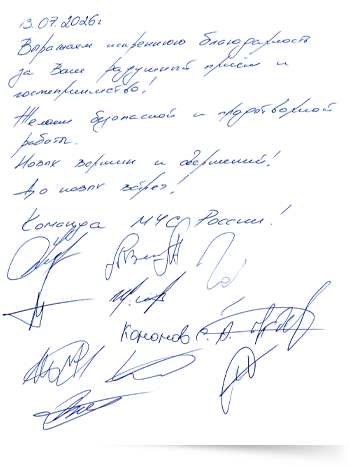 13.07.2026г
Выражаем искреннюю благодарность
за Ваш радушный приём и
гостеприимство!
Желаем безопасной и плодотворной
работы.
Новых вершин и свершений!
До новых встреч!
Команда МЧС России!
Кононов С. А.